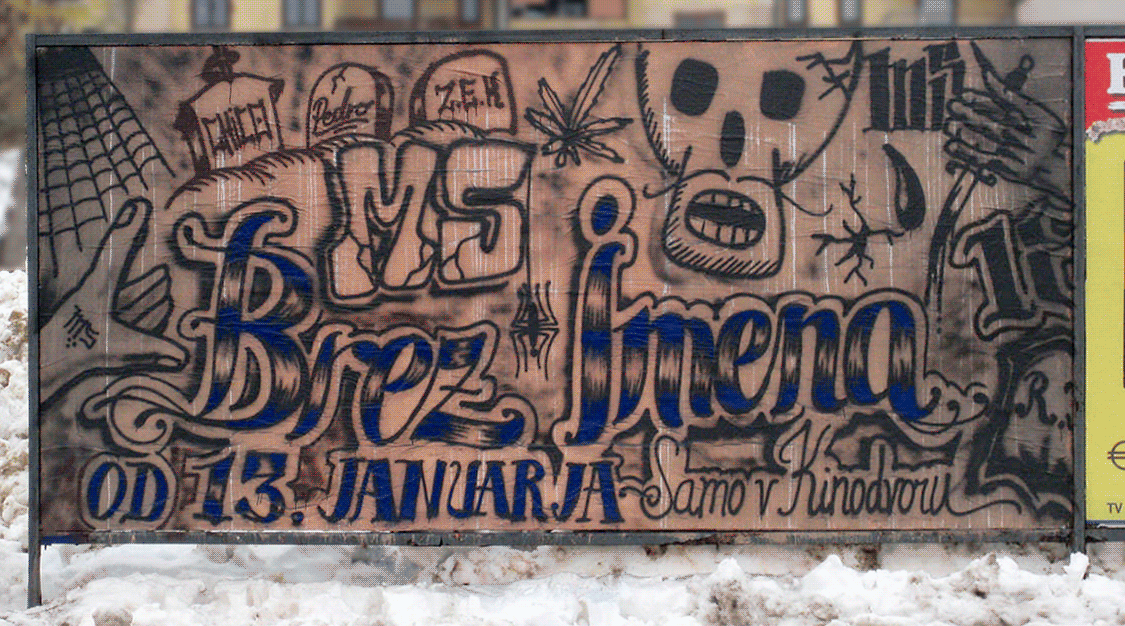 CHICO
Pedro
Z.E.K
MS
Brez Imena
OD 13. JANUARJA Samo v Kinodvoru
R.
TV